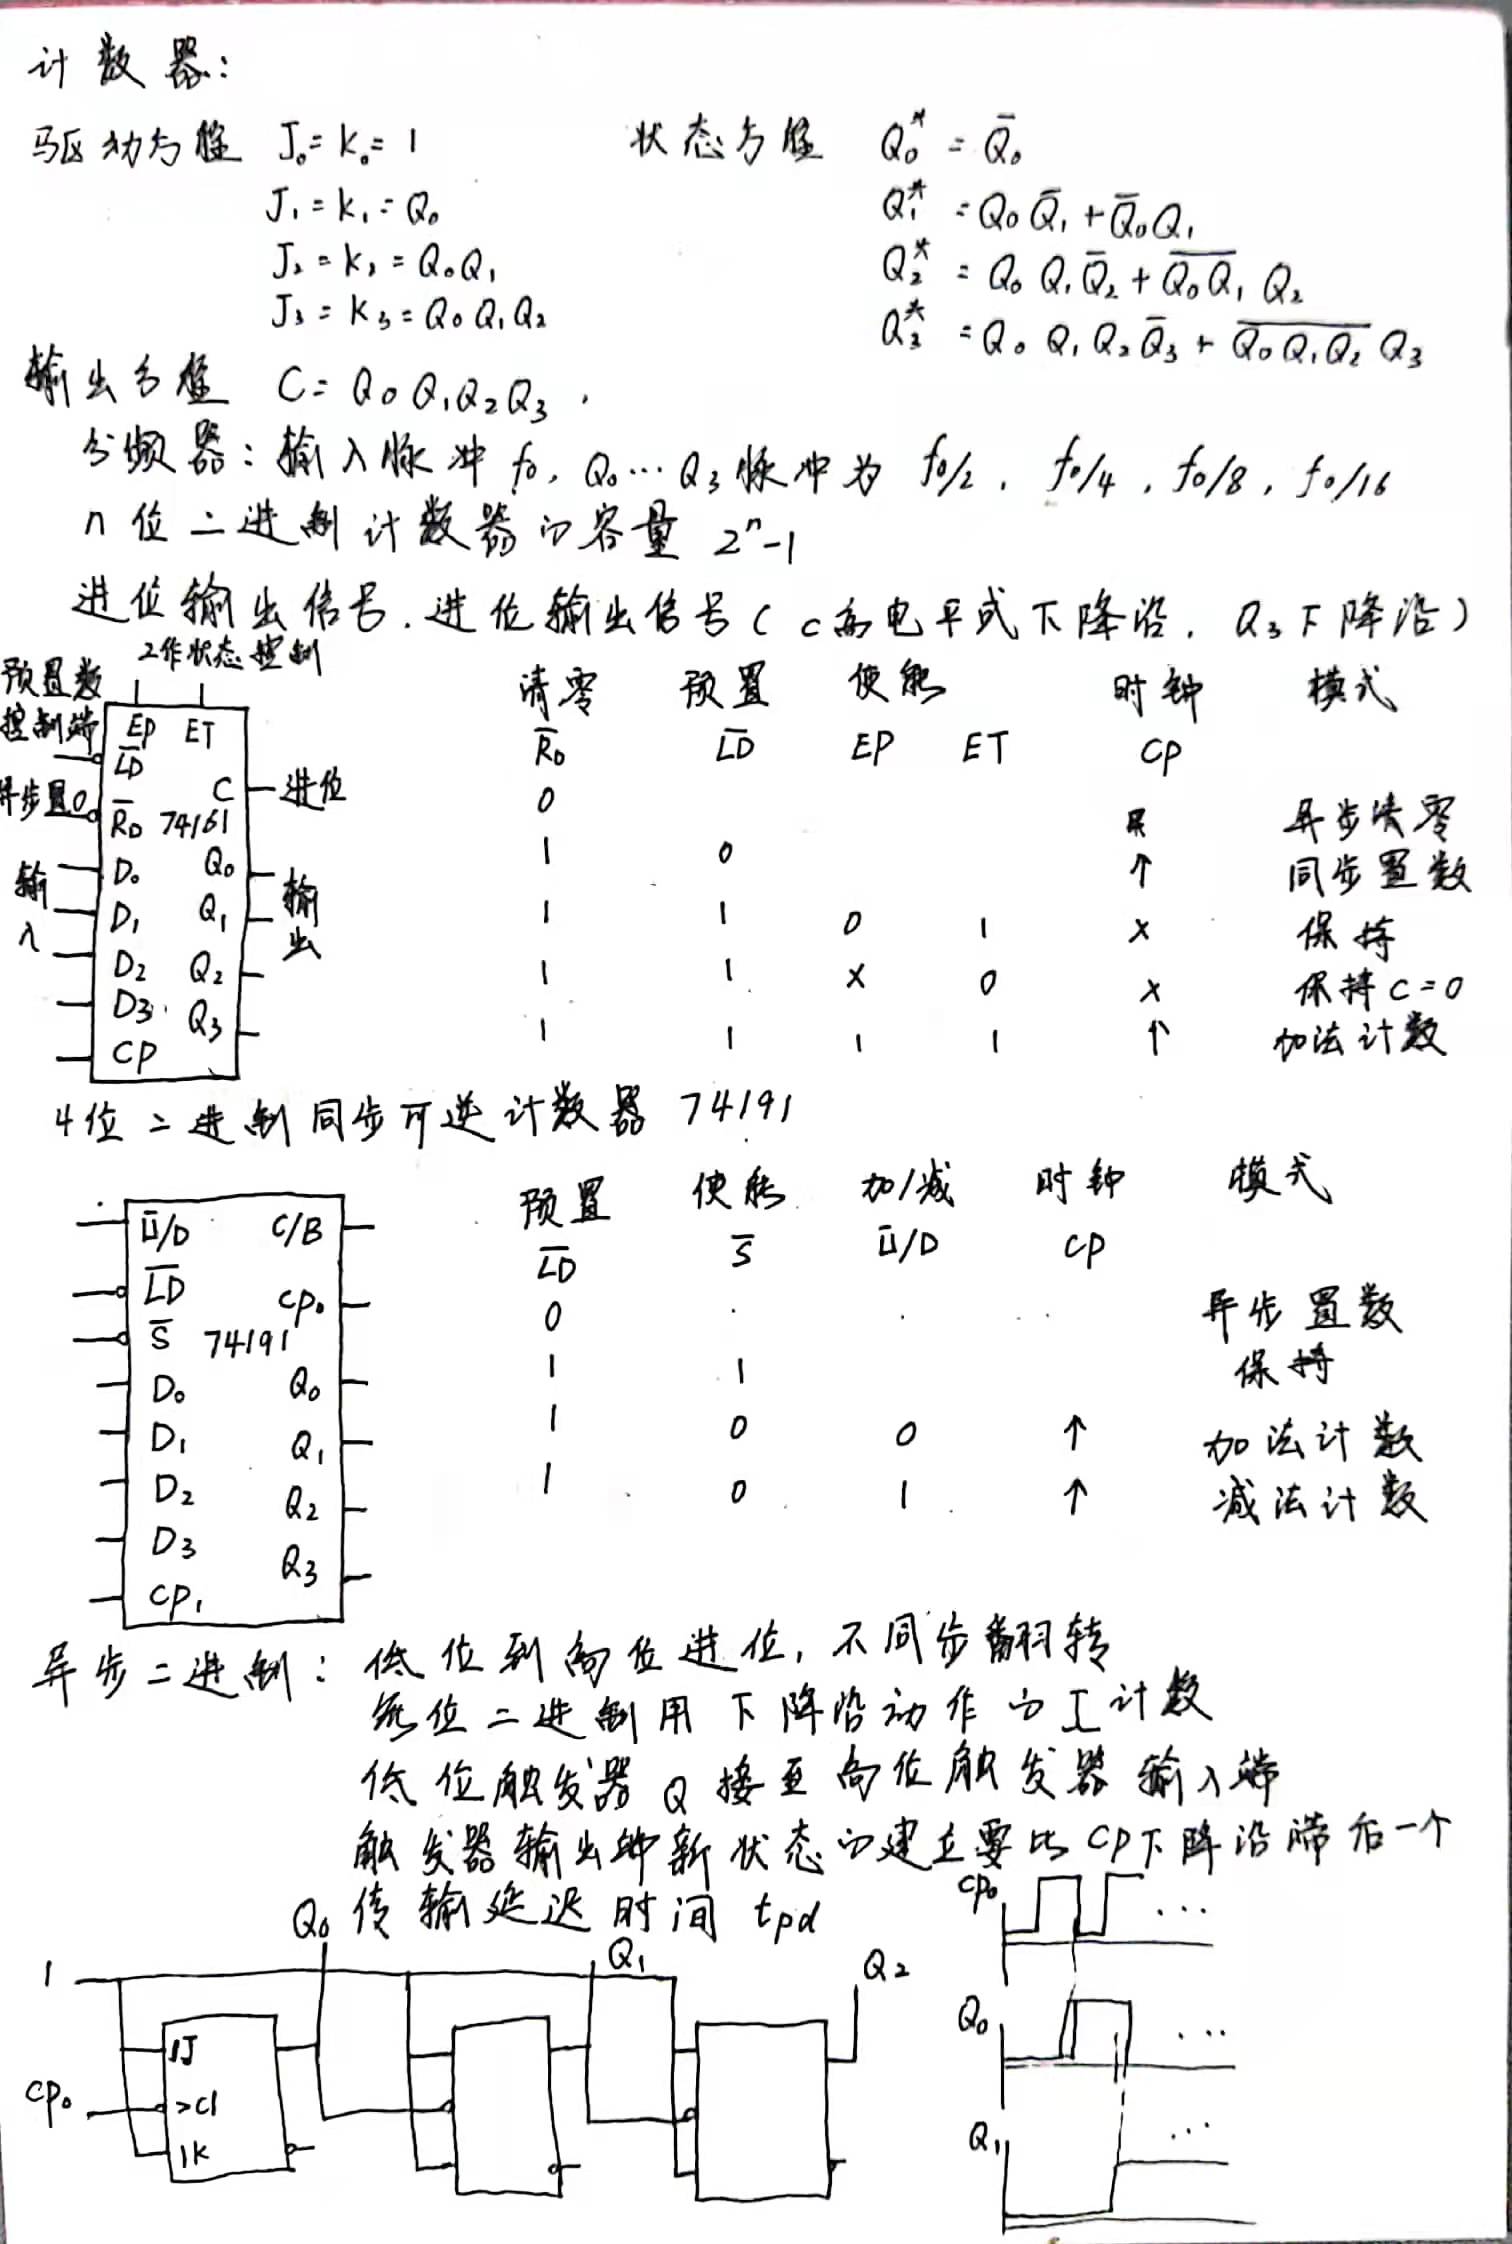 计数器:
驱动方程 J₀=K₀=1 状态方程 Q₀* = Q̅₀
J₁=K₁=Q₀ Q₁* = Q₀Q̅₁+Q̅₀Q₁
J₂=K₂=Q₀Q₁ Q₂* = Q₀Q₁Q̅₂+\overline{Q₀Q₁}Q₂
J₃=K₃=Q₀Q₁Q₂ Q₃* = Q₀Q₁Q₂Q̅₃+\overline{Q₀Q₁Q₂}Q₃
输出方程 C=Q₀Q₁Q₂Q₃.
分频器:输入脉冲f₀,Q₀…Q₃脉冲为 f₀/2, f₀/4, f₀/8, f₀/16
n位二进制计数器的容量 2ⁿ-1
进位输出信号.进位输出信号(C高电平或下降沿,Q₃下降沿)
工作状态控制
预置数控制端
异步置0
输入
EP ET
L̅D̅
C 进位
R̅D 74161
D₀ Q₀
D₁ Q₁
D₂ Q₂
D₃ Q₃
CP
输出
清零 预置 使能 时钟 模式
R̅D L̅D̅ EP ET CP
0 异步清零
1 0 ↑ 同步置数
1 1 0 1 × 保持
1 1 × 0 × 保持C=0
1 1 1 1 ↑ 加法计数
4位二进制同步可逆计数器 74191
U̅/D C/B
L̅D̅ CP₀
S̅ 74191
D₀ Q₀
D₁ Q₁
D₂ Q₂
D₃ Q₃
CP₁
预置 使能 加/减 时钟 模式
L̅D̅ S̅ U̅/D CP
0 异步置数
1 1 保持
1 0 0 ↑ 加法计数
1 0 1 ↑ 减法计数
异步二进制:低位到高位进位,不同步翻转
位二进制用下降沿动作的 计数
低位触发器Q接至高位触发器输入端
触发器输出端新状态的建立要比CP下降沿滞后一个
传输延迟时间 tpd
1 Q₀ Q₁ Q₂
1J
CP₀ >C1
1K
CP₀ …
Q₀ …
Q₁ …